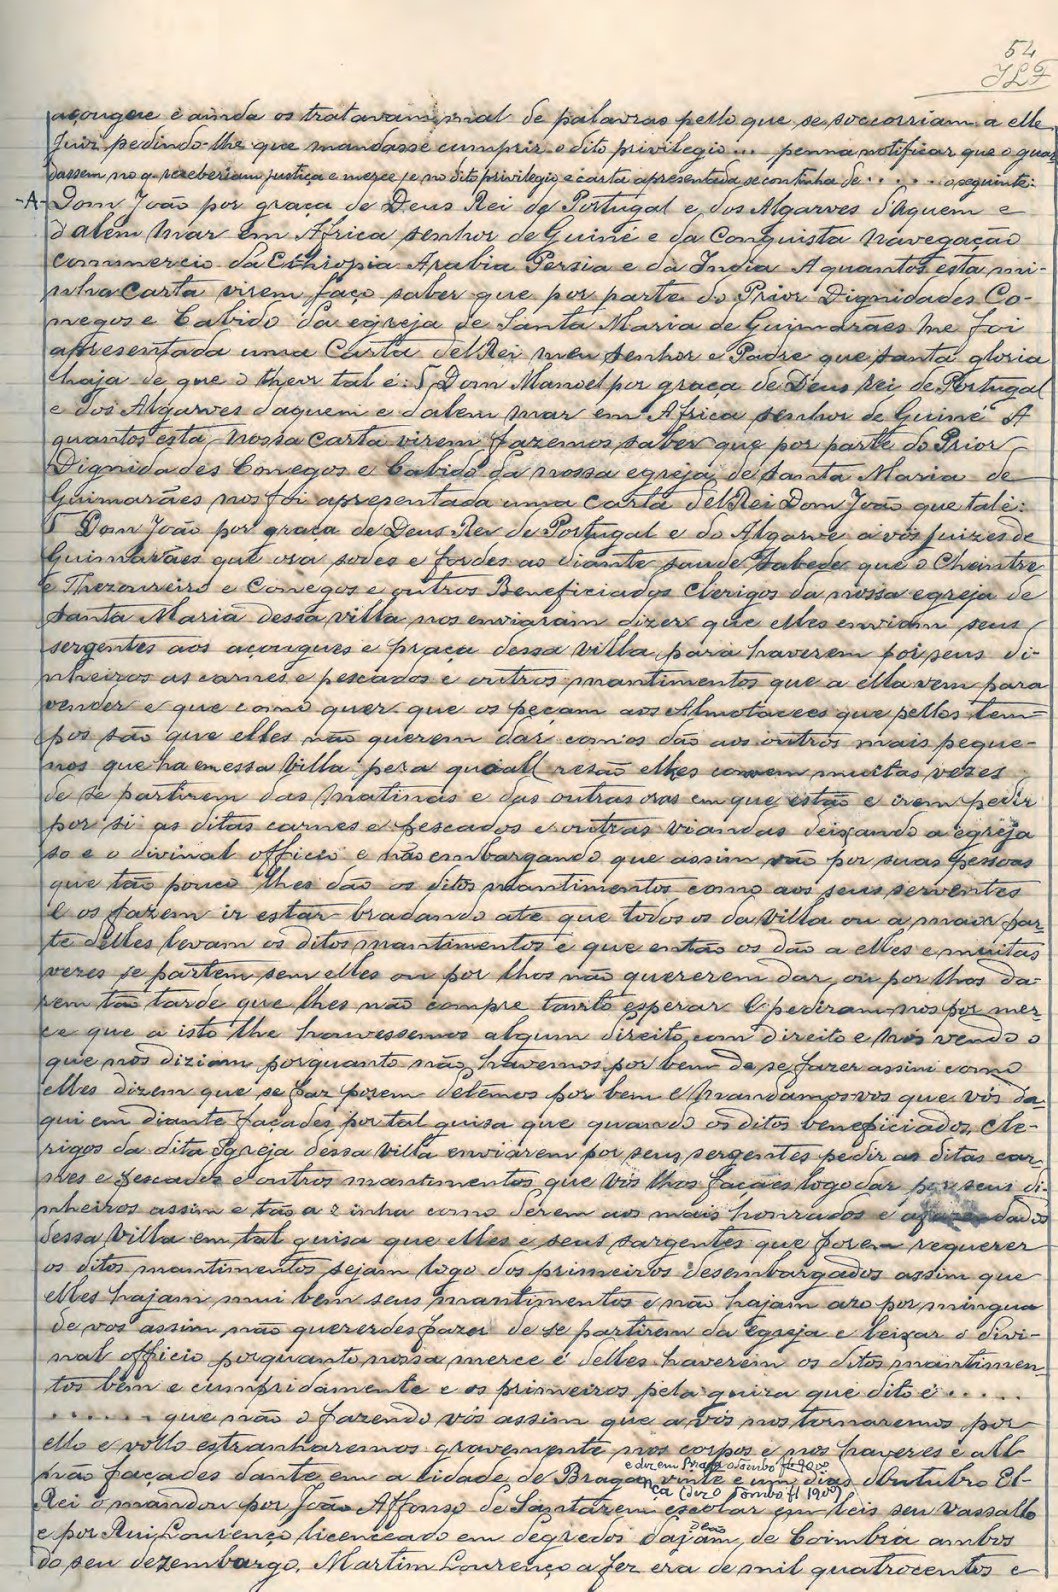 54
JLF
açougue e ainda os tratavam mal de palavras pello que se soccorriam a elle
Juiz pedindo-lhe que mandasse cumprir o dito privilegio ... penna notificar que o guar
dassem no q. receberiam justiça e merce / e no dito privilegio e carta apresentada se continha de . . . . . o seguinte:
-A- Dom João por graça de Deus Rei de Portugal e dos Algarves d'Aquem e
d'além Mar em Africa senhor de Guiné e da Conquista Navegação
Commercio da Ethiopia Arabia Persia e da India A quantos esta mi-
nha Carta virem faço saber que por parte do Prior Dignidades Co-
negos e Cabido da egreja de Santa Maria de Guimarães me foi
apresentada uma Carta delRei meu senhor e Padre que santa gloria
haja de que o theor tal é: § Dom Manoel por graça de Deus Rei de Portugal
e dos Algarves daquem e dalem mar em Africa senhor de Guiné A
quantos esta nossa Carta virem fazemos saber que por parte do Prior
Dignidades Conegos e Cabido da nossa egreja de Santa Maria de
Guimarães nos foi apresentada uma carta delRei Dom João que tal é:
§ Dom João por graça de Deus Rei de Portugal e do Algarve a vós juizes de
Guimarães que ora sodes e fordes ao diante saude Sabede que o Chantre
e Thezoureiro e Conegos e outros Beneficiados Clerigos da nossa egreja de
Santa Maria dessa villa nos enviaram dizer que elles enviam seus
sergentes aos açougues e praça dessa villa para haverem por seus di-
nheiros as carnes e pescados e outros mantimentos que a ella vem para
vender e que como quer que os peçam aos Almotacees que pellos tem-
pos são que elles não querem dar como os dão aos outros mais peque-
nos que ha em essa villa pera quall resão elhes convem muitas vezes
de se partirem das Matinas e das outras oras em que estão e irem pedir
por si as ditas carnes e pescados e outras viandas deixando a egreja
so e o divinal officio e não embargando que assim vão por suas pessoas
que tão pouco lhes dão os ditos mantimentos como aos seus serventes
E os fazem ir estar bradando ate que todos os da villa ou a maor par-
te delles levam os ditos mantimentos e que então os dão a elles e muitas
vezes se partem sem elles ou por lhos não quererem dar, ou por lhos da-
rem tão tarde que lhes não compre tanto esperar E pediram-nos por mer
ce que a isto lhe houvessemos algum direito, com direito e Nós vendo o
que nos diziam porquanto não havemos por bem de se fazer assim como
elles dizem que se faz porem detemos por bem e Mandamos vos que vós da-
qui em diante façades por tal guisa que quando os ditos beneficiados, Cle-
rigos da dita Igreja dessa villa enviarem por seus sergentes pedir as ditas car-
nes e pescados e outros mantimentos que vós lhos façaes logo dar por seus di-
nheiros assim e tão azinha como derem aos mais honrados e afazendados
dessa villa em tal guisa que elles e seus sargentes que forem requerer
os ditos mantimentos sejam logo dos primeiros desembargados assim que
elles hajam mui bem seus mantimentos e não hajam azo por mingua
de vos assim não quererdes fazer de se partirem da egreja e leixar o divi-
nal officio porquanto nossa merce é delles haverem os ditos mantimen-
tos bem e cumpridamente e os primeiros pela guiza que dito é . . . . .
. . . . . . que não o fazendo vós assim que a vós nos tornaremos por
ello e vollo estranharemos gravemente nos corpos e nos haveres e all
não façades dante em a Cidade de Bragança vinte e um dias Outubro El-
Rei o mandou por João Affonso de Santarem escolar em leis seu vassallo
e por Rui Lourenço licenceado em degredos de coimbra ambos
do seu dezembargo. Martim Lourenço a fez era de mil quatrocentos e